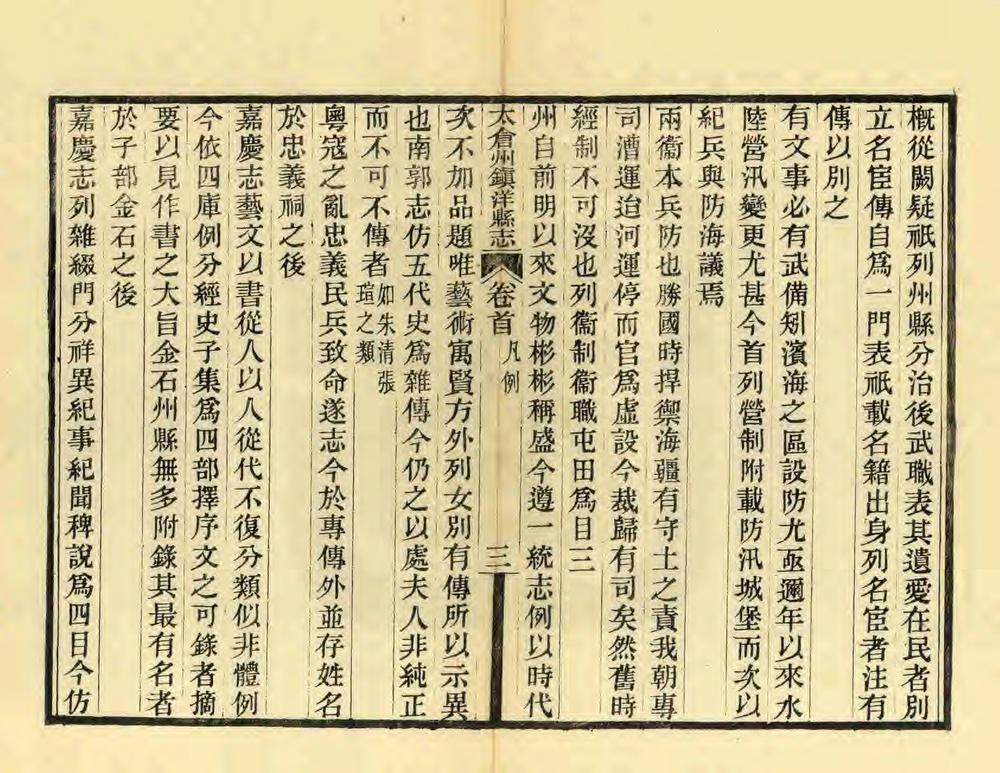 概從闕疑祇列州縣分治後武職表其遺愛在民者別
立名宦傳自爲一門表祇載名籍出身列名宦者注有
傳以別之
有文事必有武備矧濱海之區設防尤亟邇年以來水
陸營汛變更尤甚今首列營制附載防汛城堡而次以
紀兵與防海議焉
兩衞本兵防也勝國時捍禦海疆有守土之責我朝專
司漕運迨河運停而官爲虛設今裁歸有司矣然舊時
經制不可沒也列衞制衞職屯田爲目三
州自前明以來文物彬彬稱盛今遵一統志例以時代
太倉州鎮洋縣志 卷首 凡例 三
次不加品題唯藝術寓賢方外列女別有傳所以示異
也南郭志仿五代史爲雜傳今仍之以處夫人非純正
而不可不傳者如朱清張
瑄之類
粵寇之亂忠義民兵致命遂志今於專傳外並存姓名
於忠義祠之後
嘉慶志藝文以書從人以人從代不復分類似非體例
今依四庫例分經史子集爲四部擇序文之可錄者摘
要以見作書之大旨金石州縣無多附錄其最有名者
於子部金石之後
嘉慶志列雜綴門分祥異紀事紀聞稗說爲四目今仿